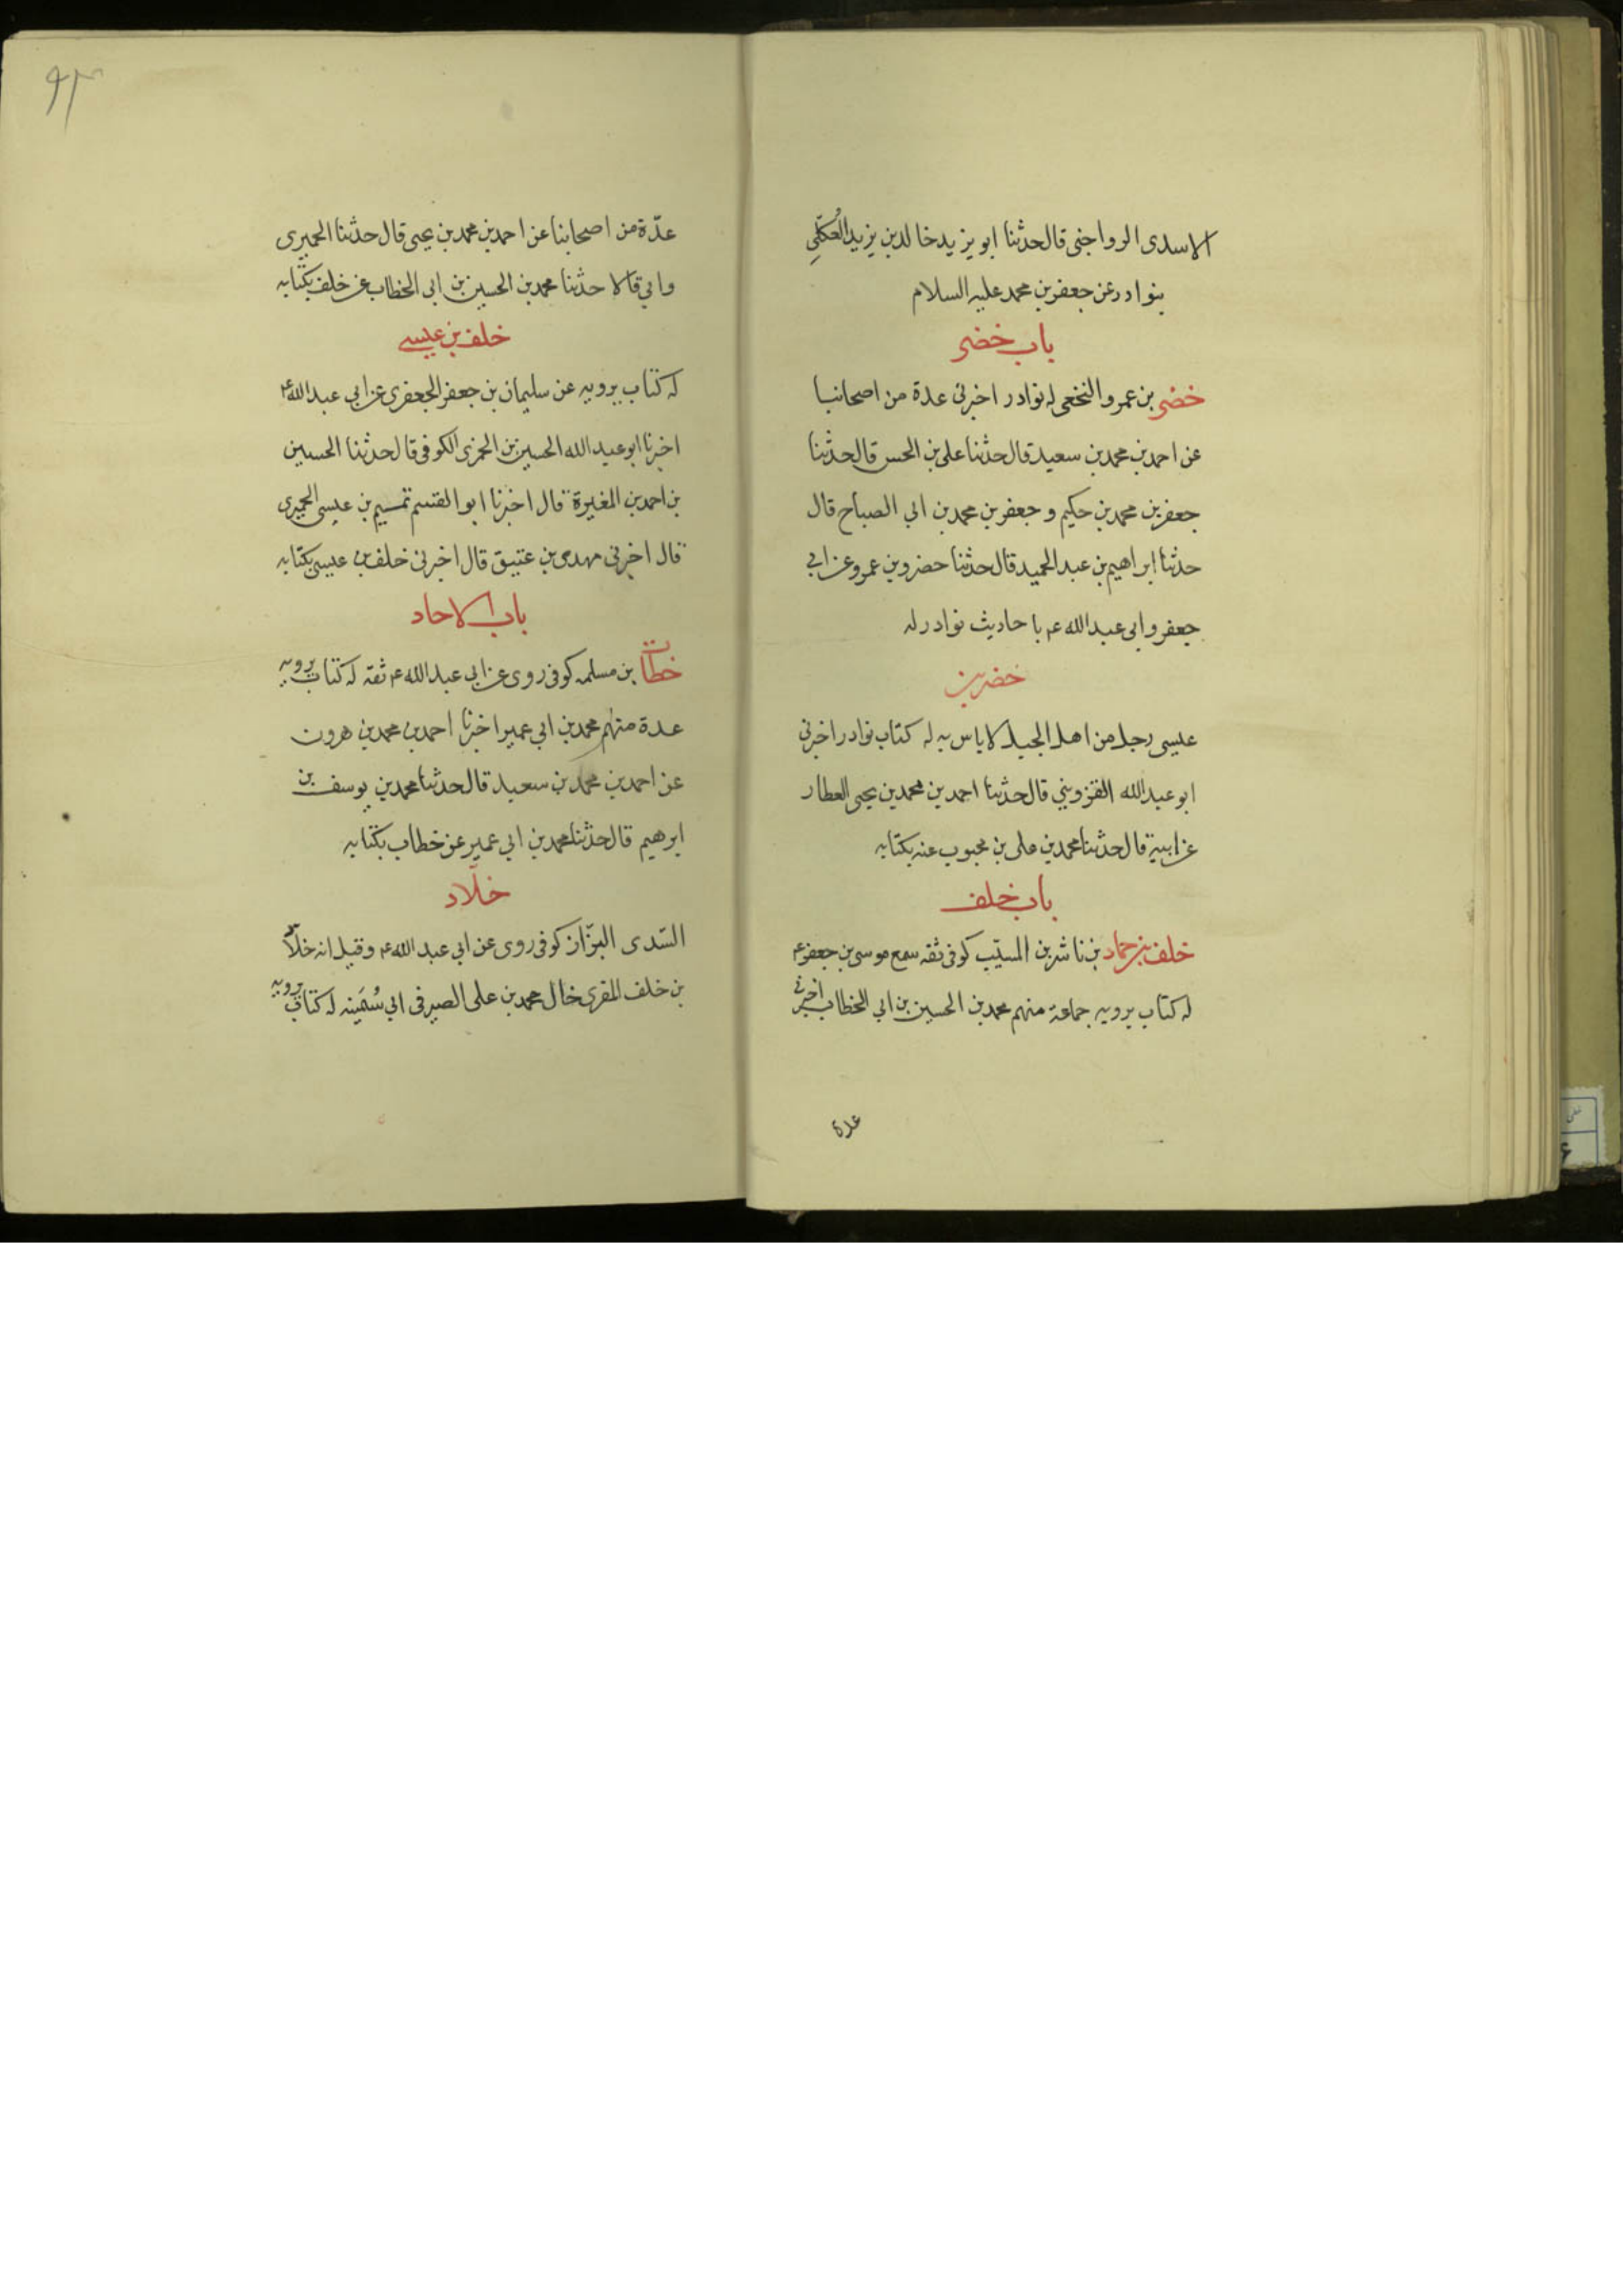 الاسدى الرواجنى قال حدثنا ابو يزيد خالد بن يزيد العُكلِى
بنوادر عن جعفر بن محمد عليه السلام
باب خضر
خضر بن عمرو النخعى له نوادر اخبرنى عدة من اصحانبا
عن احمد بن محمد بن سعيد قال حدثنا على بن الحسن قال حدثنا
جعفر بن محمد بن حكيم و جعفر بن محمد بن ابي الصباح قال
حدثنا ابراهيم بن عبد الحميد قال حدثنا حضر وبن عمرو عن ابي
جعفر وابى عبد الله ع باحاديث نوادر له
خضر بن
عيسى رجل من اهل الجبل لا باس به له كتاب نوادر اخبرنى
ابو عبد الله القزوينى قال حدثنا احمد بن محمد بن يحيى العطار
عن ابيه قال حدثنا محمد بن على بن محبوب عنه بكتابه
باب خلف
خلف بن حماد بن ناشر بن المسيّب كوفى ثقه سمع موسى بن جعفر ع
له كتاب يرويه جماعة منهم محمد بن الحسين بن ابي الخطاب اخبرنى
عدة
٩٣
عدّة من اصحابنا عن احمد بن محمد بن يحيى قال حدثنا الحميرى
وابي قالا حدثنا محمد بن الحسين بن ابى الخطاب عن خلف بكتابه
خلف بن عيسى
له كتاب يرويه عن سليمان بن جعفر الجعفرى عن ابى عبد الله ع
اخبرنا ابو عبد الله الحسين بن الخمرى الكوفى قال حدثنا الحسين
بن احمد بن المغيرة قال اخبرنا ابو القسم تمسيم بن عيسى الحميرى
قال اخبرنى مهدى بن عتيق قال اخبرنى خلف بن عيسى بكتابه
باب الاحاد
خطاب بن مسلمه كوفى روى عن ابى عبد الله ع ثقه له كتاب يرويه
عدة منهم محمد بن ابى عمير اخبرنا احمد بن محمد بن هرون
عن احمد بن محمد بن سعيد قال حدثنا محمد بن يوسف بن
ابرهيم قال حدثنا محمد بن ابى عمير عن خطاب بكتابه
خلّاد
السّدى البزّاز كوفى روى عن ابى عبد الله ع وقيل انه خلّاد
بن خلف المقرى خال محمد بن على الصيرفى ابى سُمَينه له كتاب يرويه